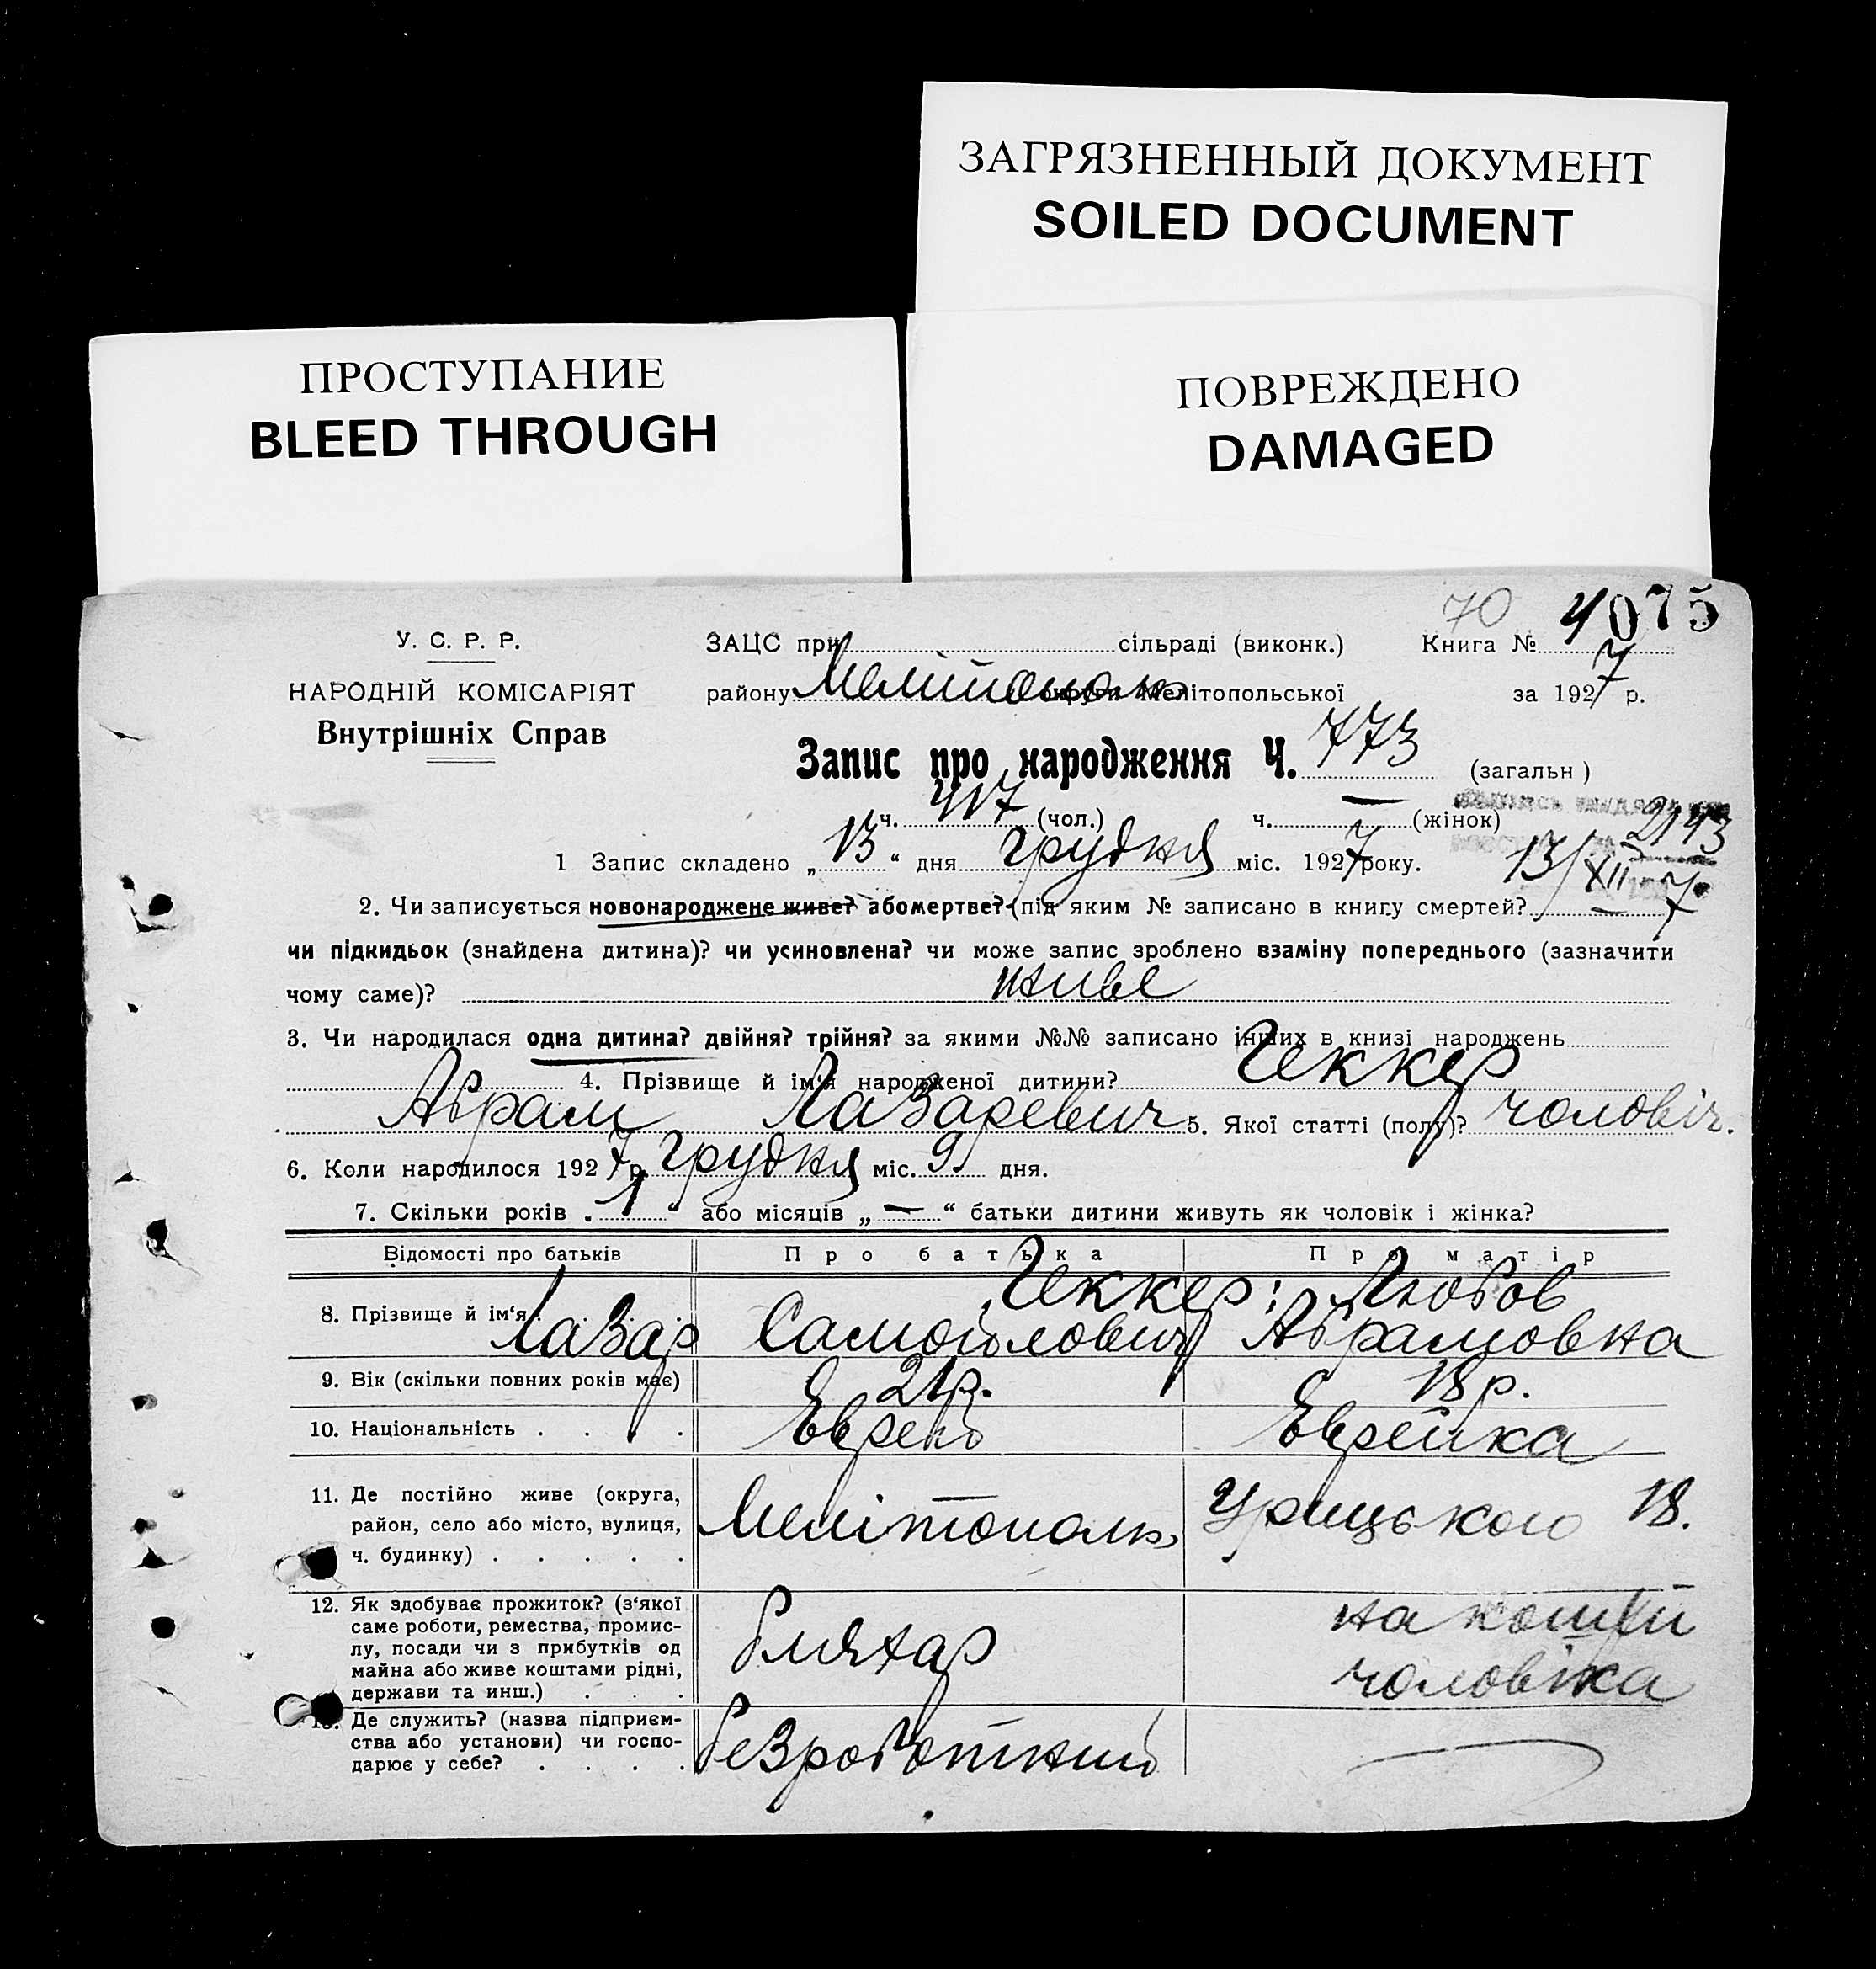 ЗАГРЯЗНЕННЫЙ ДОКУМЕНТ
SOILED DOCUMENT
ПРОСТУПАНИЕ
BLEED THROUGH
ПОВРЕЖДЕНО
DAMAGED
70 4075
У. С. Р. Р.
ЗАЦС при сільраді (виконк.) Книга №
НАРОДНІЙ КОМІСАРІЯТ
району Мелітополь округи Мелітопольської за 1927 р.
Внутрішніх Справ
Запис про народження Ч. 773 (загальн)
ч. 417 (чол.) ч. — (жінок)
2193
1 Запис складено „13“ дня грудня міс. 1927 року. 13/XII 7
2. Чи записується новонароджене живе? або мертве? (під яким № записано в книгу смертей? —
чи підкидьок (знайдена дитина)? чи усиновлена? чи може запис зроблено взаміну попереднього (зазначити
чому саме)? живе
3. Чи народилася одна дитина? двійня? трійня? за якими №№ записано інших в книзі народжень
4. Прізвище й ім'я народженої дитини? Геккер
Абрам Лазаревич 5. Якої статті (полу)? чоловіч.
6. Коли народилося 1927 р. грудня міс. 9 дня.
7. Скільки років „1“ або місяців „—“ батьки дитини живуть як чоловік і жінка?
Відомості про батьків Про батька Про матір
8. Прізвище й ім'я Геккер; Любов
Лазар Самойлович Абрамовна
9. Вік (скільки повних років має) 21р. 18 р.
10. Національність . . . . Еврей Еврейка
11. Де постійно живе (округа,
район, село або місто, вулиця,
ч. будинку) . . . . .
Мелітополь Урицького 18.
12. Як здобуває прожиток? (з'якої
саме роботи, ремества, промис-
лу, посади чи з прибутків од
майна або живе коштами рідні,
держави та инш.) . . .
бляхар
на кошти
чоловіка
13. Де служить? (назва підприєм-
ства або установи) чи госпо-
дарює у себе? . . . .
безроботний